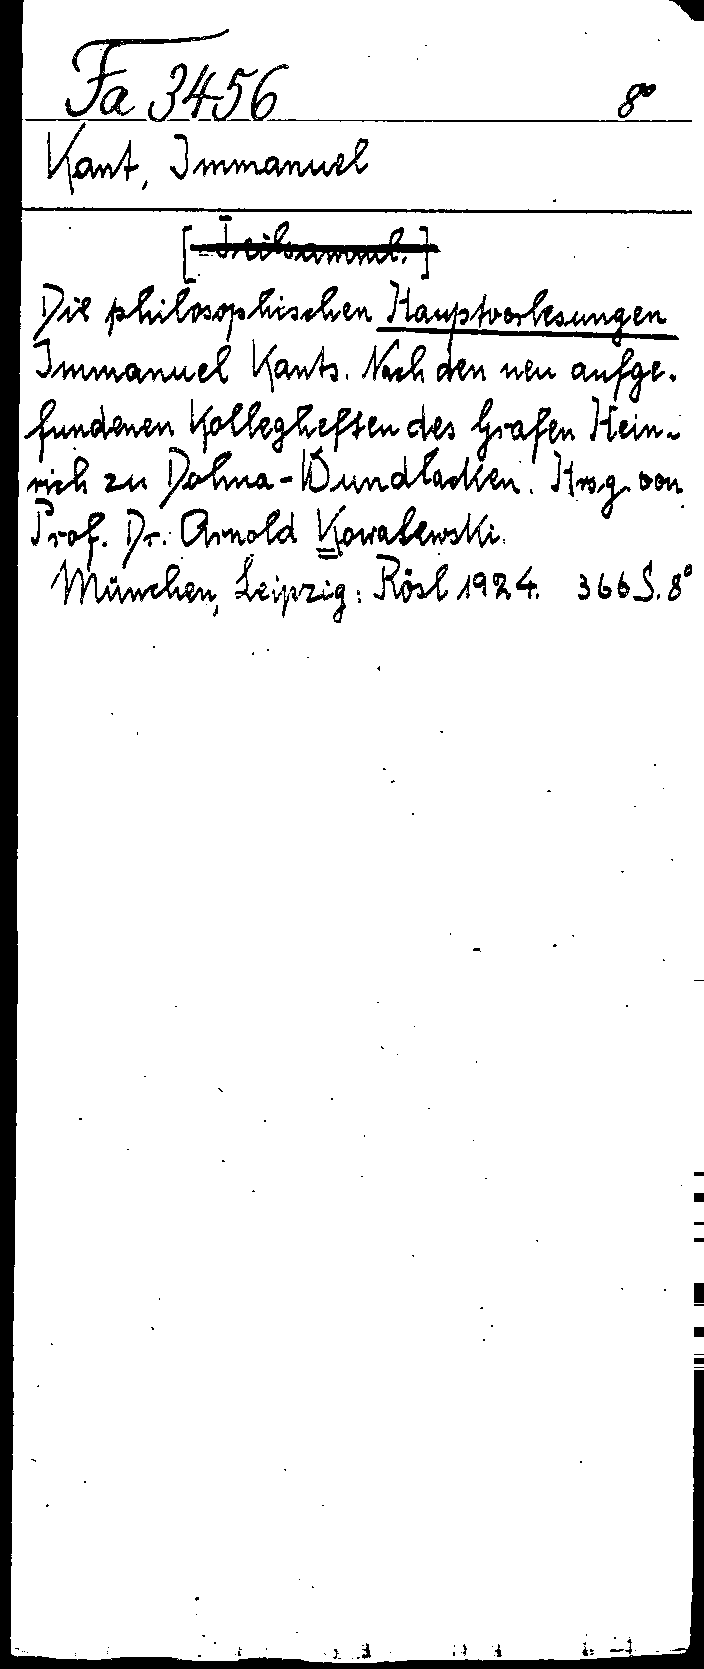 Fa 3456 8°
Kant, Immanuel
[Teilsamml.]
Die philosophischen Hauptvorlesungen
Immanuel Kants. Nach den neu aufge-
fundenen Kollegheften des Grafen Hein-
rich zu Dohna-Wundlacken. Hrsg. von
Prof. Dr. Arnold Kowalewski.
München, Leipzig: Rösl 1924. 366 S. 8°